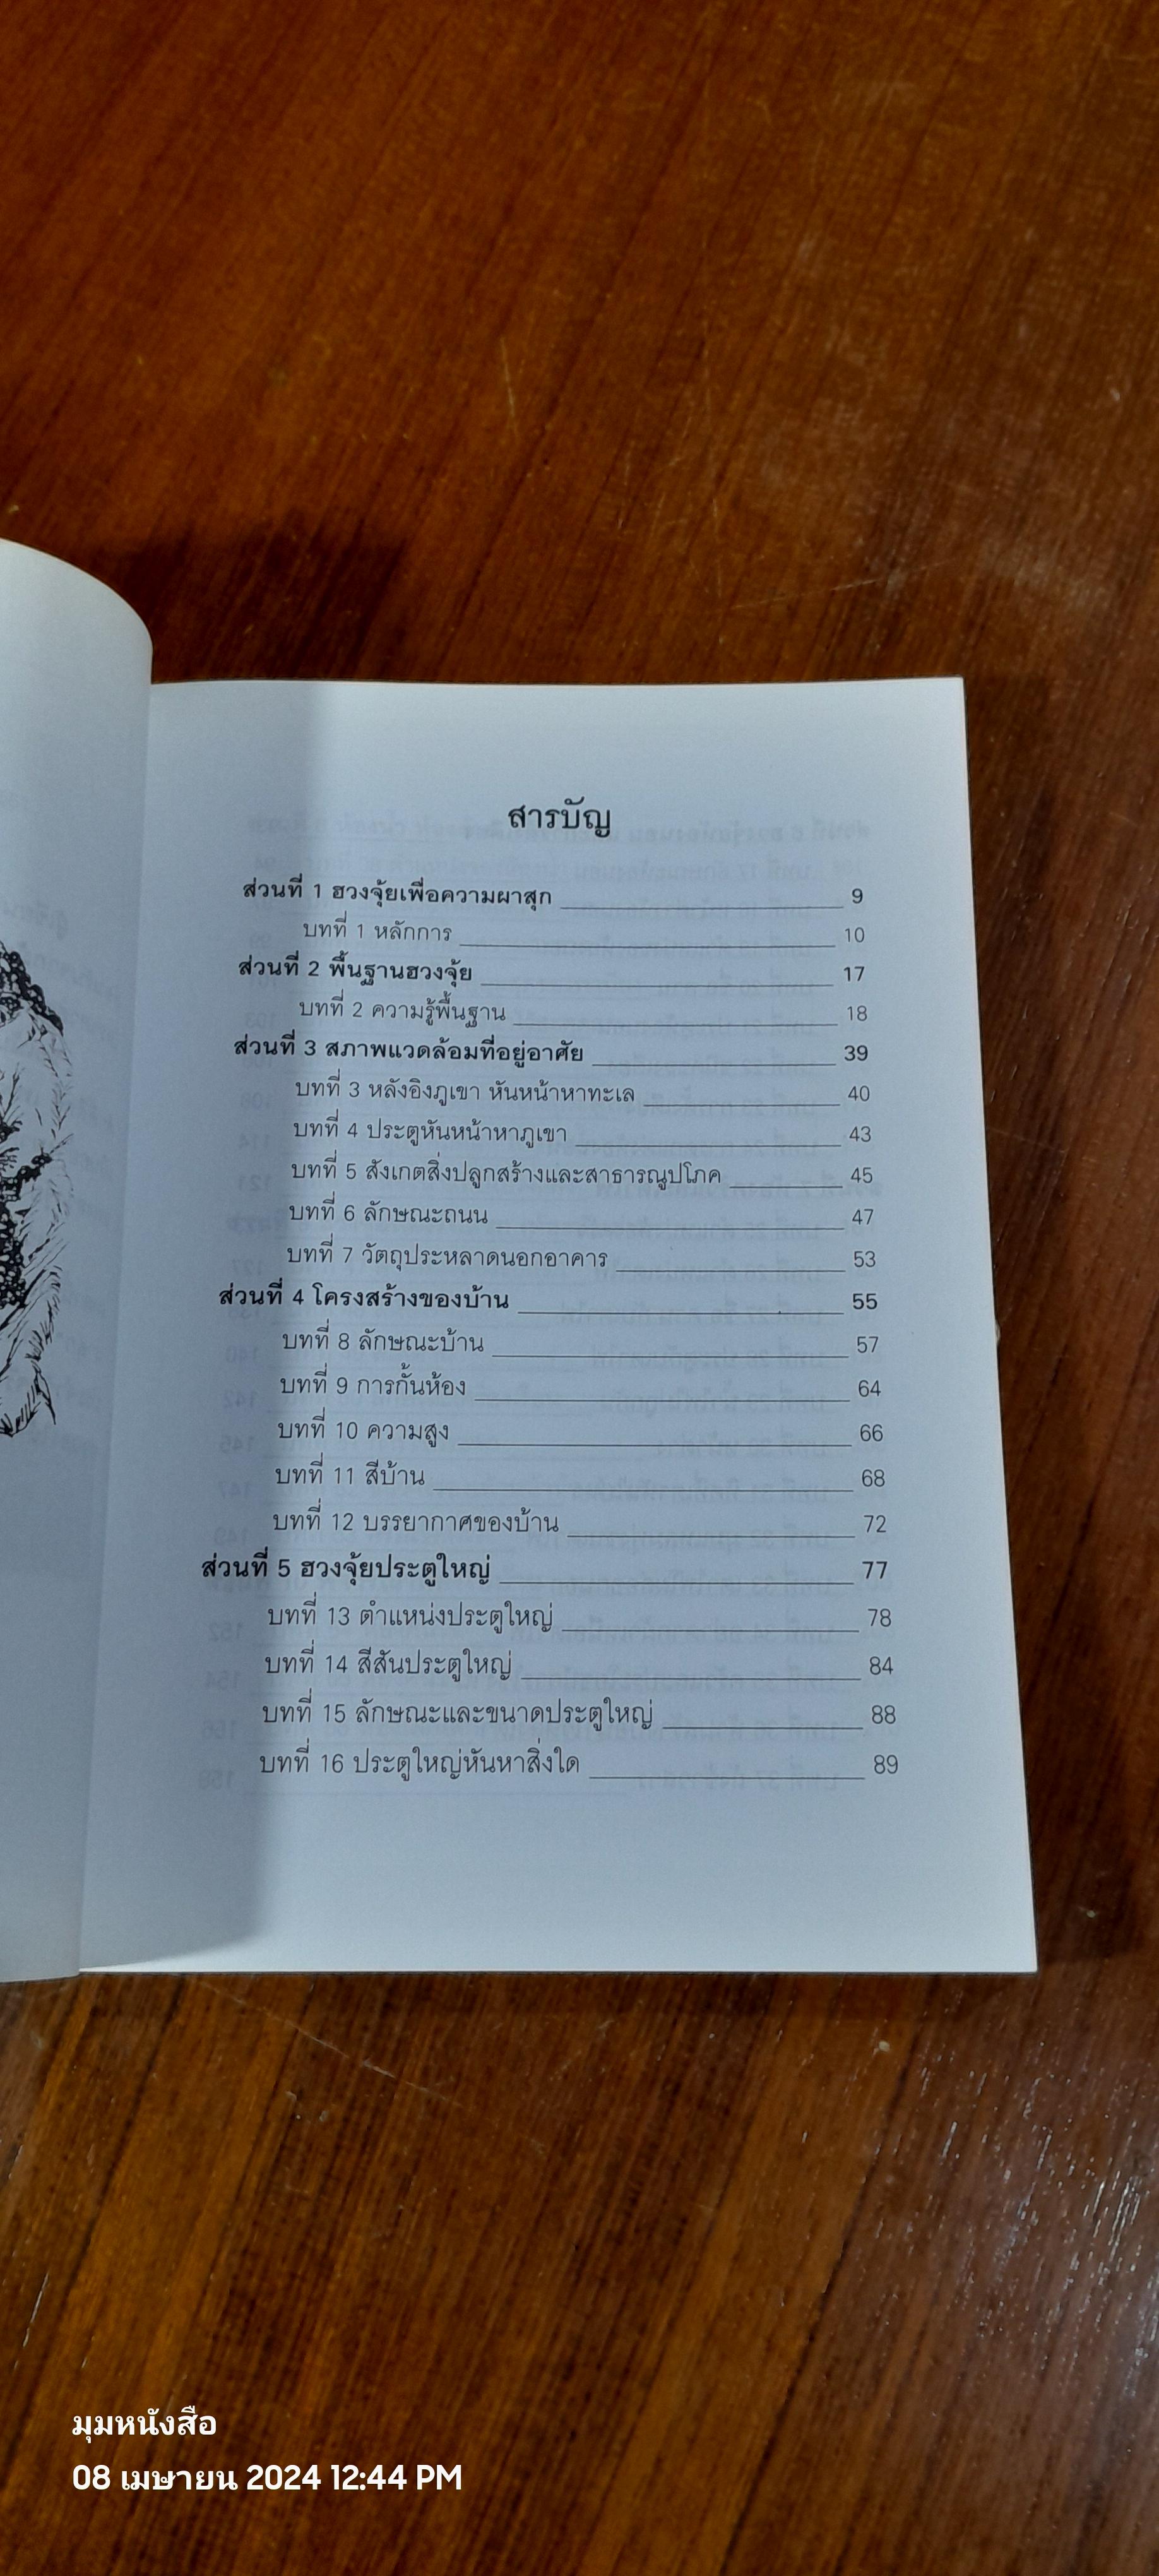 สารบัญ
ส่วนที่ 1 ฮวงจุ้ยเพื่อความผาสุก 9
บทที่ 1 หลักการ 10
ส่วนที่ 2 พื้นฐานฮวงจุ้ย 17
บทที่ 2 ความรู้พื้นฐาน 18
ส่วนที่ 3 สภาพแวดล้อมที่อยู่อาศัย 39
บทที่ 3 หลังอิงภูเขา หันหน้าหาทะเล 40
บทที่ 4 ประตูหันหน้าหาภูเขา 43
บทที่ 5 สังเกตสิ่งปลูกสร้างและสาธารณูปโภค 45
บทที่ 6 ลักษณะถนน 47
บทที่ 7 วัตถุประหลาดนอกอาคาร 53
ส่วนที่ 4 โครงสร้างของบ้าน 55
บทที่ 8 ลักษณะบ้าน 57
บทที่ 9 การกั้นห้อง 64
บทที่ 10 ความสูง 66
บทที่ 11 สีบ้าน 68
บทที่ 12 บรรยากาศของบ้าน 72
ส่วนที่ 5 ฮวงจุ้ยประตูใหญ่ 77
บทที่ 13 ตำแหน่งประตูใหญ่ 78
บทที่ 14 สีสันประตูใหญ่ 84
บทที่ 15 ลักษณะและขนาดประตูใหญ่ 88
บทที่ 16 ประตูใหญ่หันหาสิ่งใด 89
มุมหนังสือ
08 เมษายน 2024 12:44 PM